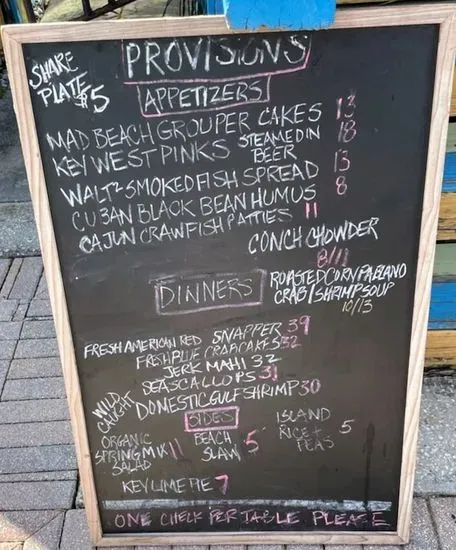 PROVISIONS
SHARE
PLATE $5
APPETIZERS
MAD BEACH GROUPER CAKES 13
KEY WEST PINKS STEAMED IN BEER 18
WALT'S SMOKED FISH SPREAD 13
CUBAN BLACK BEAN HUMUS 8
CAJUN CRAWFISH PATTIES 11
CONCH CHOWDER
8/11
ROASTED CORN PABLANO
CRAB/SHRIMP SOUP
10/13
DINNERS
FRESH AMERICAN RED SNAPPER 39
FRESH BLUE CRAB CAKES 32
JERK MAHI 32
SEA SCALLOPS 31
WILD
CAUGHT
DOMESTIC GULF SHRIMP 30
SIDES
ORGANIC
SPRING MIX 11
SALAD
BEACH
SLAW 5
ISLAND
RICE +
PEAS 5
KEY LIME PIE 7
ONE CHECK PER TABLE PLEASE